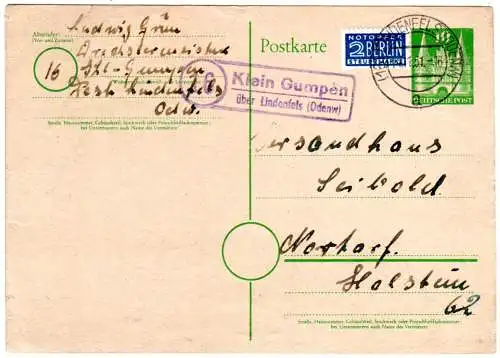 Absender:
Ludwig Grün
Drechslermeister
16
Kl. Gumpen
Post Lindenfels
Odw.
Straße, Hausnummer, Gebäudeteil, Stockwerk oder Postschließfachnummer,
bei Untermietern auch Name des Vermieters
Postkarte
NOTOPFER
2 BERLIN
STEUERMARKE
LINDENFELS
10
DEUTSCHE POST
Klein Gumpen
über Lindenfels (Odenw)
Versandhaus
Seibold
Nortorf
Holstein
62
Straße, Hausnummer, Gebäudeteil, Stockwerk oder Postschließfachnummer,
bei Untermietern auch Name des Vermieters